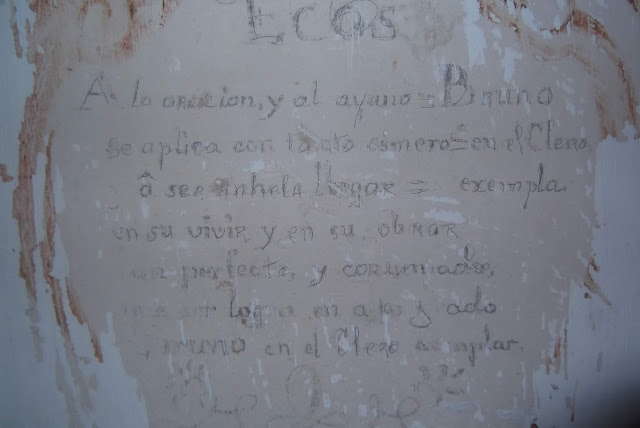 Ecos
A lo oracion, y al ayuno = Bruno
se aplica con tanto esmero = en el Clero
â ser anhela llegar = exempla
en su vivir, y en su, obrar
un perfecto, y
ser logra en a
Bruno en el Clero exemplar.